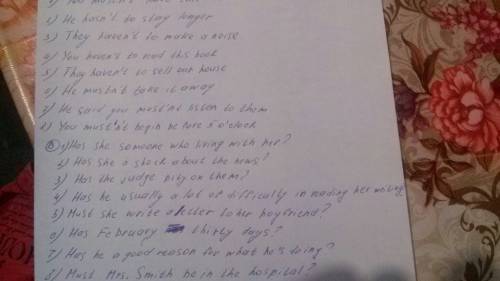 You mustn't have
2) He hasn't to stay longer
3) They haven't to make a noise
4) You haven't to read this book
5) They haven't to sell our house
6) He mustn't take it away
7) He said you mustn't listen to them
8) You mustn't begin before 5 o'clock
B 1) Has she someone who living with her?
2) Has she a shock about the news?
3) Has the judge pity on them?
4) Has he usually a lot of difficulty in reading her writing
5) Must she write a letter to her boyfriend?
6) Has February thirty days?
7) Has he a good reason for what he's doing?
8) Must Mrs. Smith be in the hospital?